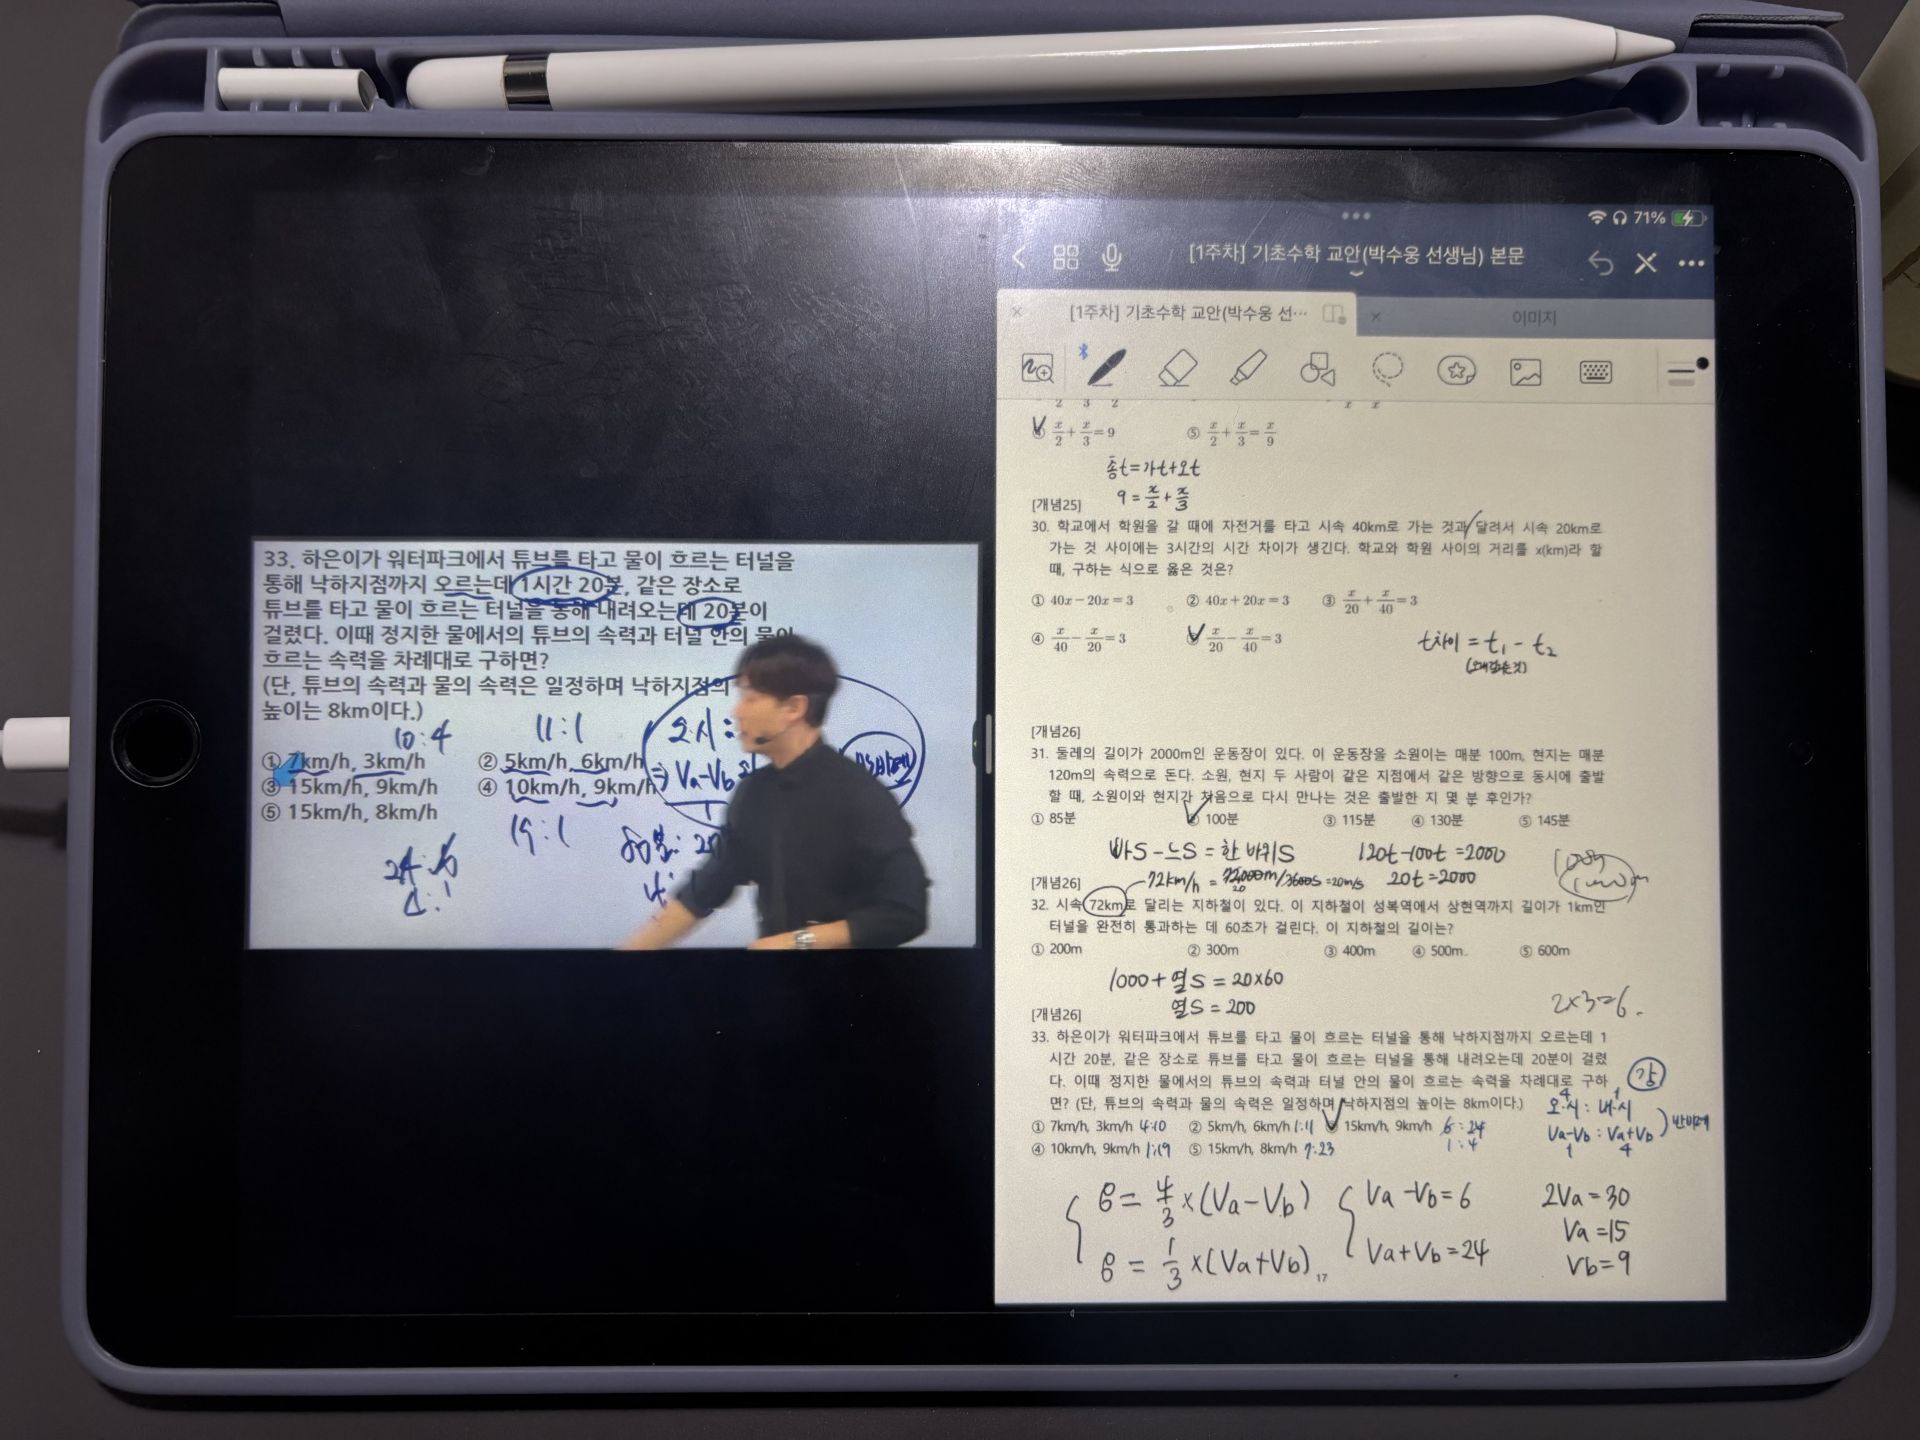 33. 하은이가 워터파크에서 튜브를 타고 물이 흐르는 터널을
통해 낙하지점까지 오르는데 1시간 20분, 같은 장소로
튜브를 타고 물이 흐르는 터널을 통해 내려오는데 20분이
걸렸다. 이때 정지한 물에서의 튜브의 속력과 터널 안의 물이
흐르는 속력을 차례대로 구하면?
(단, 튜브의 속력과 물의 속력은 일정하며 낙하지점의
높이는 8km이다.)
10:4 11:1 오시:
① 7km/h, 3km/h ② 5km/h, 6km/h
⇒ Va-Vb
③ 15km/h, 9km/h ④ 10km/h, 9km/h
⑤ 15km/h, 8km/h
19:1
24:6
4:1
80분: 20
4:
71%
[1주차] 기초수학 교안(박수웅 선생님) 본문
[1주차] 기초수학 교안(박수웅 선…
이미지
2 3 2
x x
④ x/2 + x/3 = 9 ⑤ x/2 + x/3 = x/9
총t=가t+오t
9 = x/2 + x/3
[개념25]
30. 학교에서 학원을 갈 때에 자전거를 타고 시속 40km로 가는 것과 달려서 시속 20km로
가는 것 사이에는 3시간의 시간 차이가 생긴다. 학교와 학원 사이의 거리를 x(km)라 할
때, 구하는 식으로 옳은 것은?
① 40x-20x=3 ② 40x+20x=3 ③ x/20 + x/40 = 3
④ x/40 - x/20 = 3 ⑤ x/20 - x/40 = 3
t차이 = t₁ - t₂
(오래걸린것)
[개념26]
31. 둘레의 길이가 2000m인 운동장이 있다. 이 운동장을 소원이는 매분 100m, 현지는 매분
120m의 속력으로 돈다. 소원, 현지 두 사람이 같은 지점에서 같은 방향으로 동시에 출발
할 때, 소원이와 현지가 처음으로 다시 만나는 것은 출발한 지 몇 분 후인가?
① 85분 ② 100분 ③ 115분 ④ 130분 ⑤ 145분
빠S-느S = 한 바퀴S 120t-100t=2000
20t=2000
[개념26]
72km/h = 72000m/3600s = 20m/s
20
32. 시속 72km로 달리는 지하철이 있다. 이 지하철이 성복역에서 상현역까지 길이가 1km인
터널을 완전히 통과하는 데 60초가 걸린다. 이 지하철의 길이는?
① 200m ② 300m ③ 400m ④ 500m ⑤ 600m
1000+열S = 20×60
열S = 200
2×3=6.
[개념26]
33. 하은이가 워터파크에서 튜브를 타고 물이 흐르는 터널을 통해 낙하지점까지 오르는데 1
시간 20분, 같은 장소로 튜브를 타고 물이 흐르는 터널을 통해 내려오는데 20분이 걸렸
다. 이때 정지한 물에서의 튜브의 속력과 터널 안의 물이 흐르는 속력을 차례대로 구하
면? (단, 튜브의 속력과 물의 속력은 일정하며 낙하지점의 높이는 8km이다.)
강
4 1
오·시 : 내·시
Va-Vb : Va+Vb ) 반비례
1 4
① 7km/h, 3km/h 4:10 ② 5km/h, 6km/h 1:11 ③ 15km/h, 9km/h 6:24
1:4
④ 10km/h, 9km/h 1:19 ⑤ 15km/h, 8km/h 7:23
8 = 4/3 ×(Va-Vb) Va-Vb=6 2Va=30
Va=15
8 = 1/3 ×(Va+Vb) Va+Vb=24 Vb=9
17